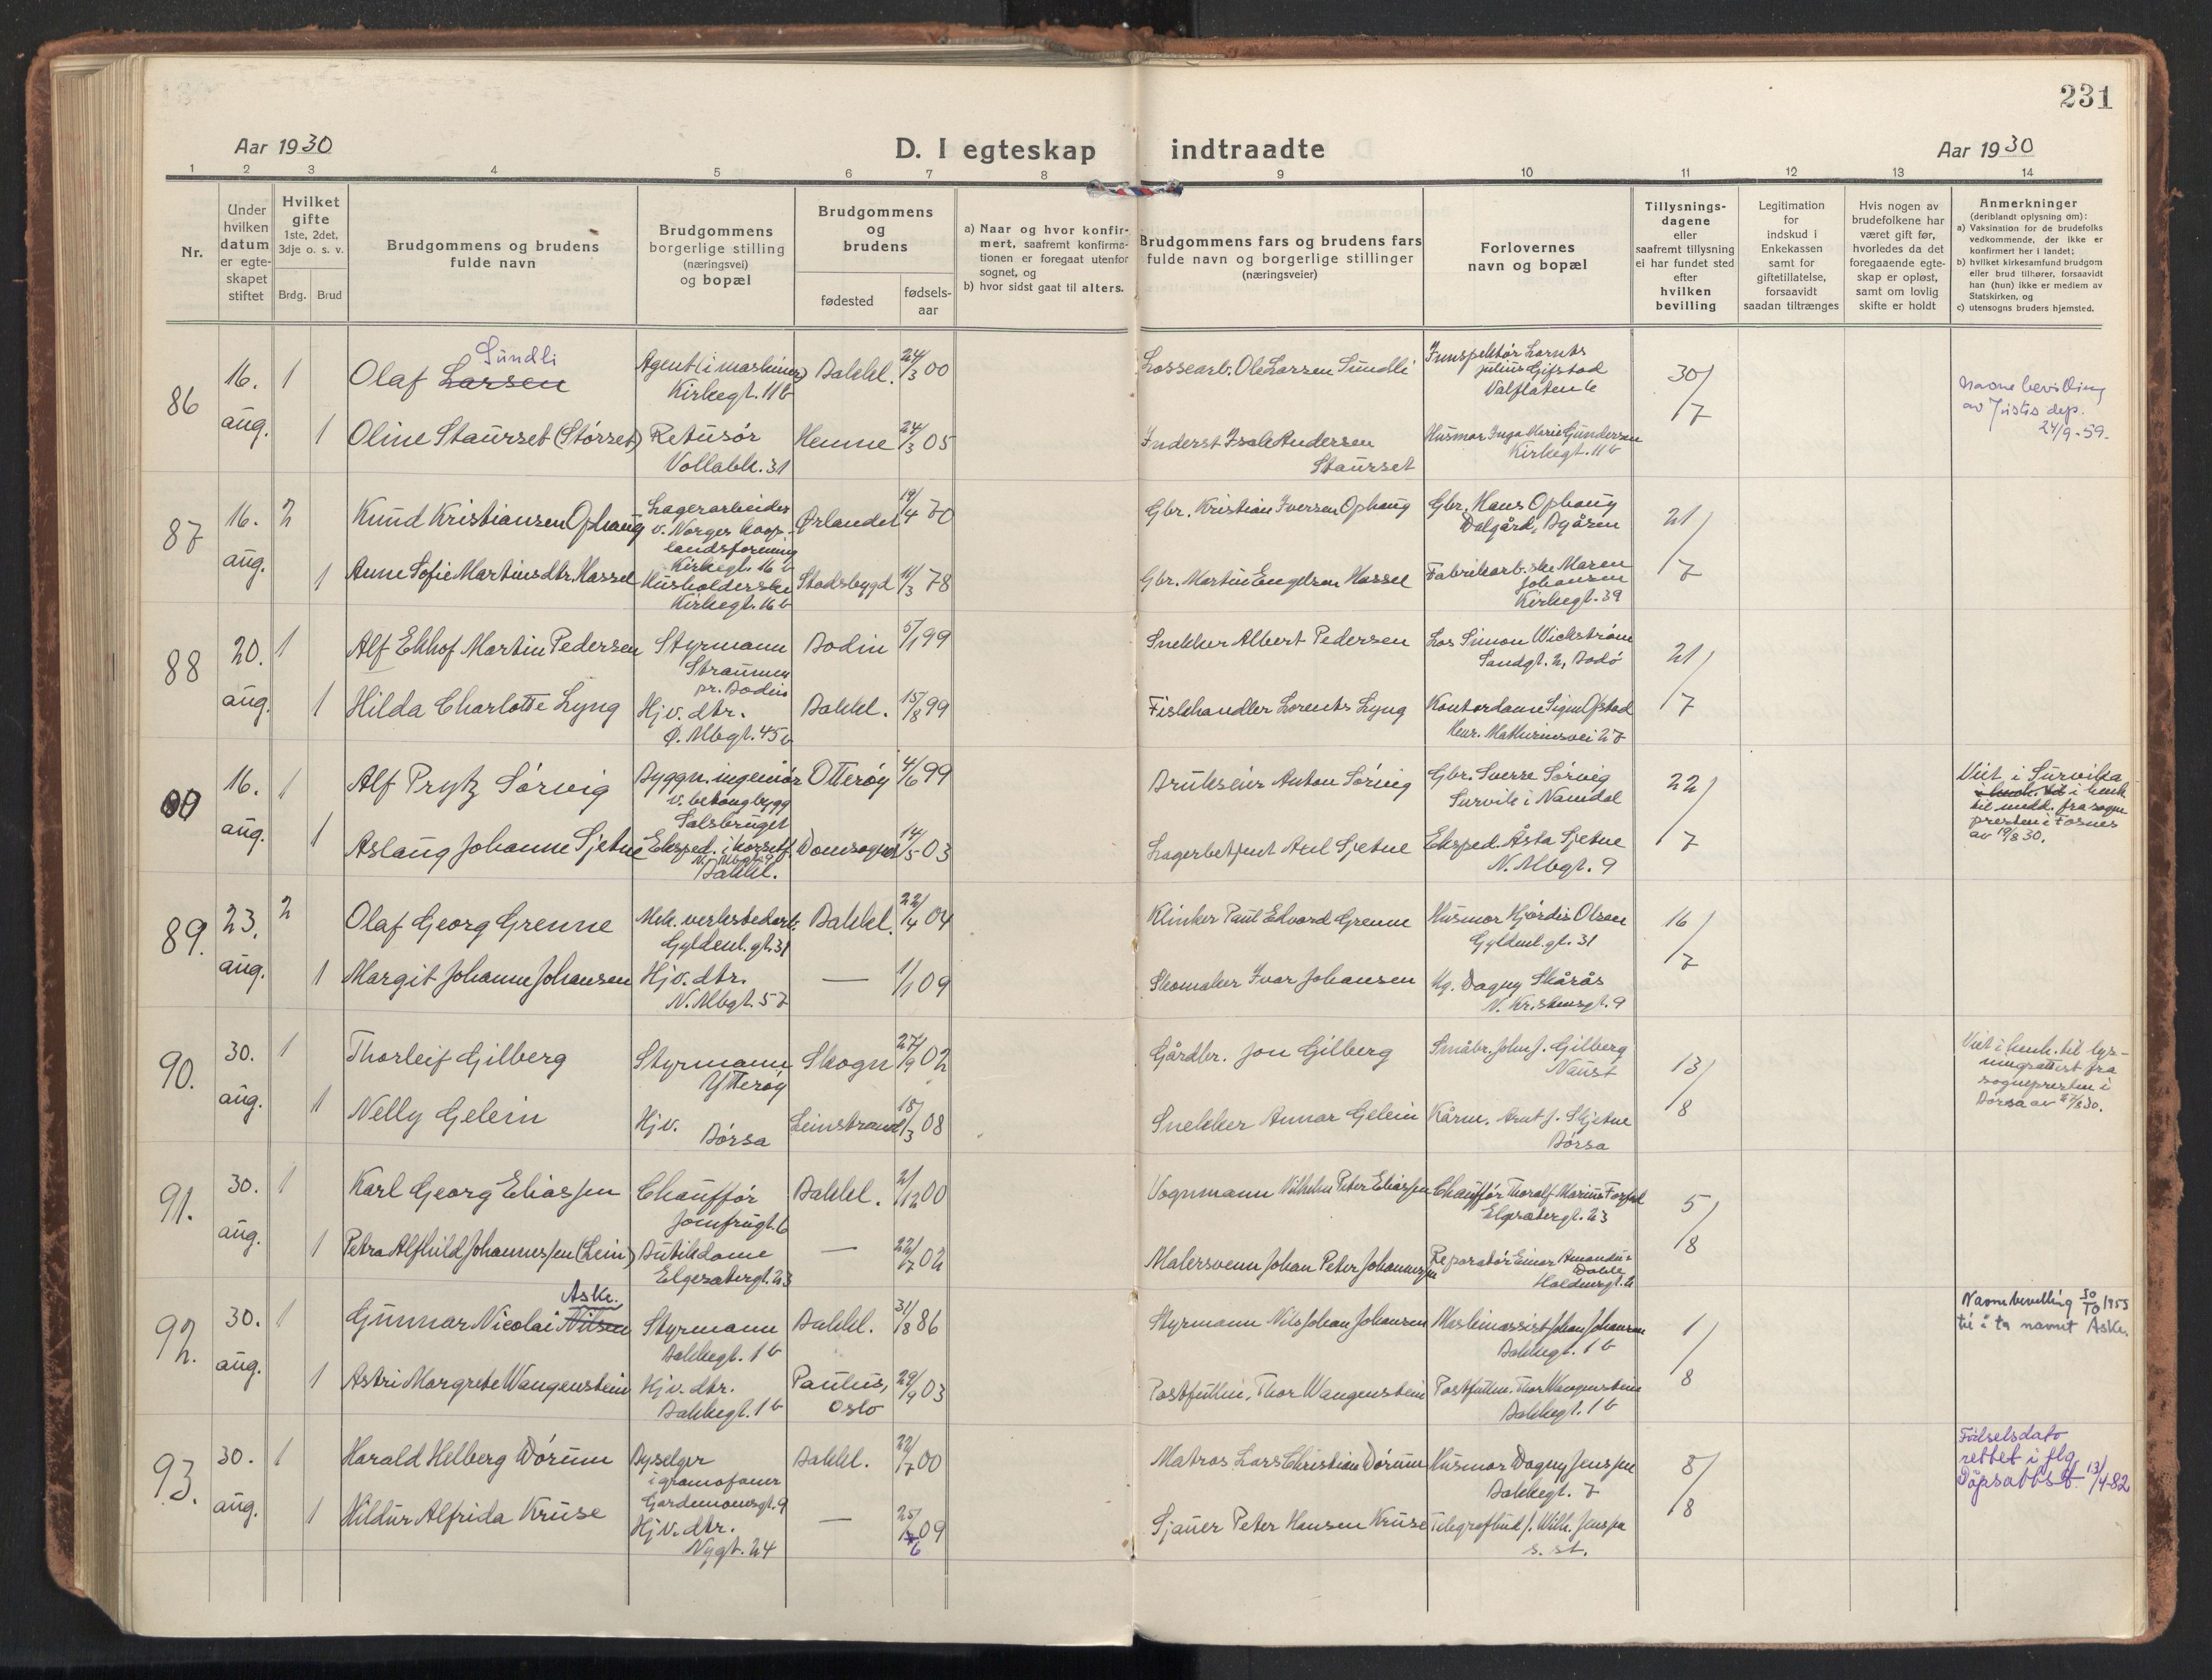 231
Aar 1930
D. I egteskap indtraadte
Aar 1930
1 2 3 4 5 6 7 8 9 10 11 12 13 14
Nr.
Under
hvilken
datum
er egte-
skapet
stiftet
Hvilket
gifte
1ste, 2det,
3dje o. s. v.
Brdg. Brud
Brudgommens og brudens
fulde navn
Brudgommens
borgerlige stilling
(næringsvei)
og bopæl
Brudgommens
og
brudens
fødested
fødsels-
aar
a) Naar og hvor konfir-
mert, saafremt konfirma-
tionen er foregaat utenfor
sognet, og
b) hvor sidst gaat til alters.
Brudgommens fars og brudens fars
fulde navn og borgerlige stillinger
(næringsveier)
Forlovernes
navn og bopæl
Tillysnings-
dagene
eller
saafremt tillysning
ei har fundet sted
efter
hvilken
bevilling
Legitimation
for
indskud i
Enkekassen
samt for
giftetillatelse,
forsaavidt
saadan tiltrænges
Hvis nogen av
brudefolkene har
været gift før,
hvorledes da det
foregaaende egte-
skap er opløst,
samt om lovlig
skifte er holdt
Anmerkninger
(deriblandt oplysning om):
a) Vaksination for de brudefolks
vedkommende, der ikke er
konfirmert her i landet;
b) hvilket kirkesamfund brudgom
eller brud tilhører, forsaavidt
han (hun) ikke er medlem av
Statskirken, og
c) utensogns bruders hjemsted.
86
16. aug.
1
Sundli
Olaf Larsen
Agent (i maskiner)
Kirkegt. 11b
Bakkl.
24/3 00
Lossearb. Ole Larsen Sundli
Innspektör Lornts
Julius Gifstad
Valfläten 6
30/7
Navnebevilling
av Justis dep.
24/9-59.
1
Oline Staurset (Störset)
Retusör
Vollabk. 31
Hemne
24/3 05
Inderst Isak Andersen
Staurset
Husmor Inga Marie Gundersen
Kirkegt. 11b
87
16. aug.
2
Knud Kristiansen Ophaug
Lagerarbeider
v. Norges koop.
landsforening
Kirkegt. 16b
Ørlandet
19/4 70
Gbr. Kristian Iversen Ophaug
Gbr. Hans Ophaug
Dalgård, Byåsen
21/7
1
Anne Sofie Martinsdtr. Hassel
Husholderske
Kirkegt. 16b
Stadsbygd
11/3 78
Gbr. Martin Engelsen Hassel
Fabrikarb.ske Maren
Johansen
Kirkegt. 39
88
20. aug.
1
Alf Ekhof Martin Pedersen
Styrmann
Straumen
pr. Bodin
Bodin
5/1 99
Snekker Albert Pedersen
Los Simon Wickström
Sandgt. 2, Bodö
21/7
1
Hilda Charlotte Lyng
Hjv. dtr.
Ø. Mbgt. 45b
Bakkl.
15/8 99
Fiskhandler Lorents Lyng
Kontordame Signe Opstad
Henr. Mathiesensvei 27
16. aug.
1
Alf Prytz Sörvig
Byggn. ingeniör
v. betongbygg
Salsbruget
Otteröy
4/6 99
Brukseier Anton Sörvig
Gbr. Sverre Sörvig
Survik i Namdal
22/7
Viet i Survika
i henh.
til medd. fra sogne
presten i Fosnes
av 19/8 30.
1
Aslaug Johanne Sjetne
Eksped. i korsetf.
N. Mbgt. 9
Bakkl.
Domsognet
14/5 03
Lagerbetjent Axel Sjetne
Eksped. Åsta Sjetne
N. Mbgt. 9
89.
23. aug.
2
Olaf Georg Grenne
Mek. verkstedarb.
Gyldenl. gt. 31
Bakkl.
22/4 04
Klinker Paul Edvard Grenne
Husmor Hjördis Olsen
Gyldenl. gt. 31
16/7
1
Margit Johanne Johansen
Hjv. dtr.
N. Mbgt. 57
—
1/1 09
Skomaker Ivar Johansen
Hg. Dagny Skårås
N. Kristiansgt. 9
90.
30. aug.
1
Thorleif Gilberg
Styrmann
Ytteröy
Skogn
27/9 02
Gårdbr. Jon Gilberg
Småbr. John J. Gilberg
Naust
13/8
Viet i henh. til lys-
ningsattest fra
sognepresten i
Börsa av 27/8 30.
1
Nelly Gelein
Hjv.
Börsa
Leinstrand
18/3 08
Snekker Annar Gelein
Kårm. Arnt J. Skjetne
Börsa
91.
30. aug.
1
Karl Georg Eliassen
Chaufför
Jomfrugt. 6
Bakkl.
2/12 00
Vognmann Vilhelm Peter Eliassen
Chaufför Thoralf Marius Forsel
Elgesætergt. 23
5/8
1
Petra Alfhild Johannessen (Lein)
Butikdame
Elgesætergt. 23
—
22/7 02
Malersvenn Johan Peter Johannessen
Reparatör Einar Amandus
Dahle
Haldensgt. 2
92.
30. aug.
1
Aske.
Gunnar Nicolai Nilsen
Styrmann
Bakkegt. 1b
Bakkl.
31/8 86
Styrmann Nils Johan Johansen
Maskinassist Johan Johansen
Bakkegt. 1b
1/8
Navnebevilling 30/10 1953
til å ta navnet Aske.
1
Astri Margrete Wangenstein
Hjv. dtr.
Bakkegt. 1b
Paulus,
Oslo
29/9 03
Postfullm. Thor Wangenstein
Postfullm. Thor Wangenstein
Bakkegt. 1b
93.
30. aug.
1
Harald Helberg Dörum
Byselger
i gramofoner
Gardemoensgt. 9
Bakkl.
22/7 00
Matros Lars Christian Dörum
Husmor Dagny Jenssen
Bakkegt. 7
8/8
Födselsdato
rettet i flg.
Dåpsattst. 13/4-82
1
Hildur Alfrida Kruse
Hjv. dtr.
Nygt. 24
—
25/6 09
Sjauer Peter Hansen Kruse
Telegrafbud J. Wilh. Jenssen
s. st.